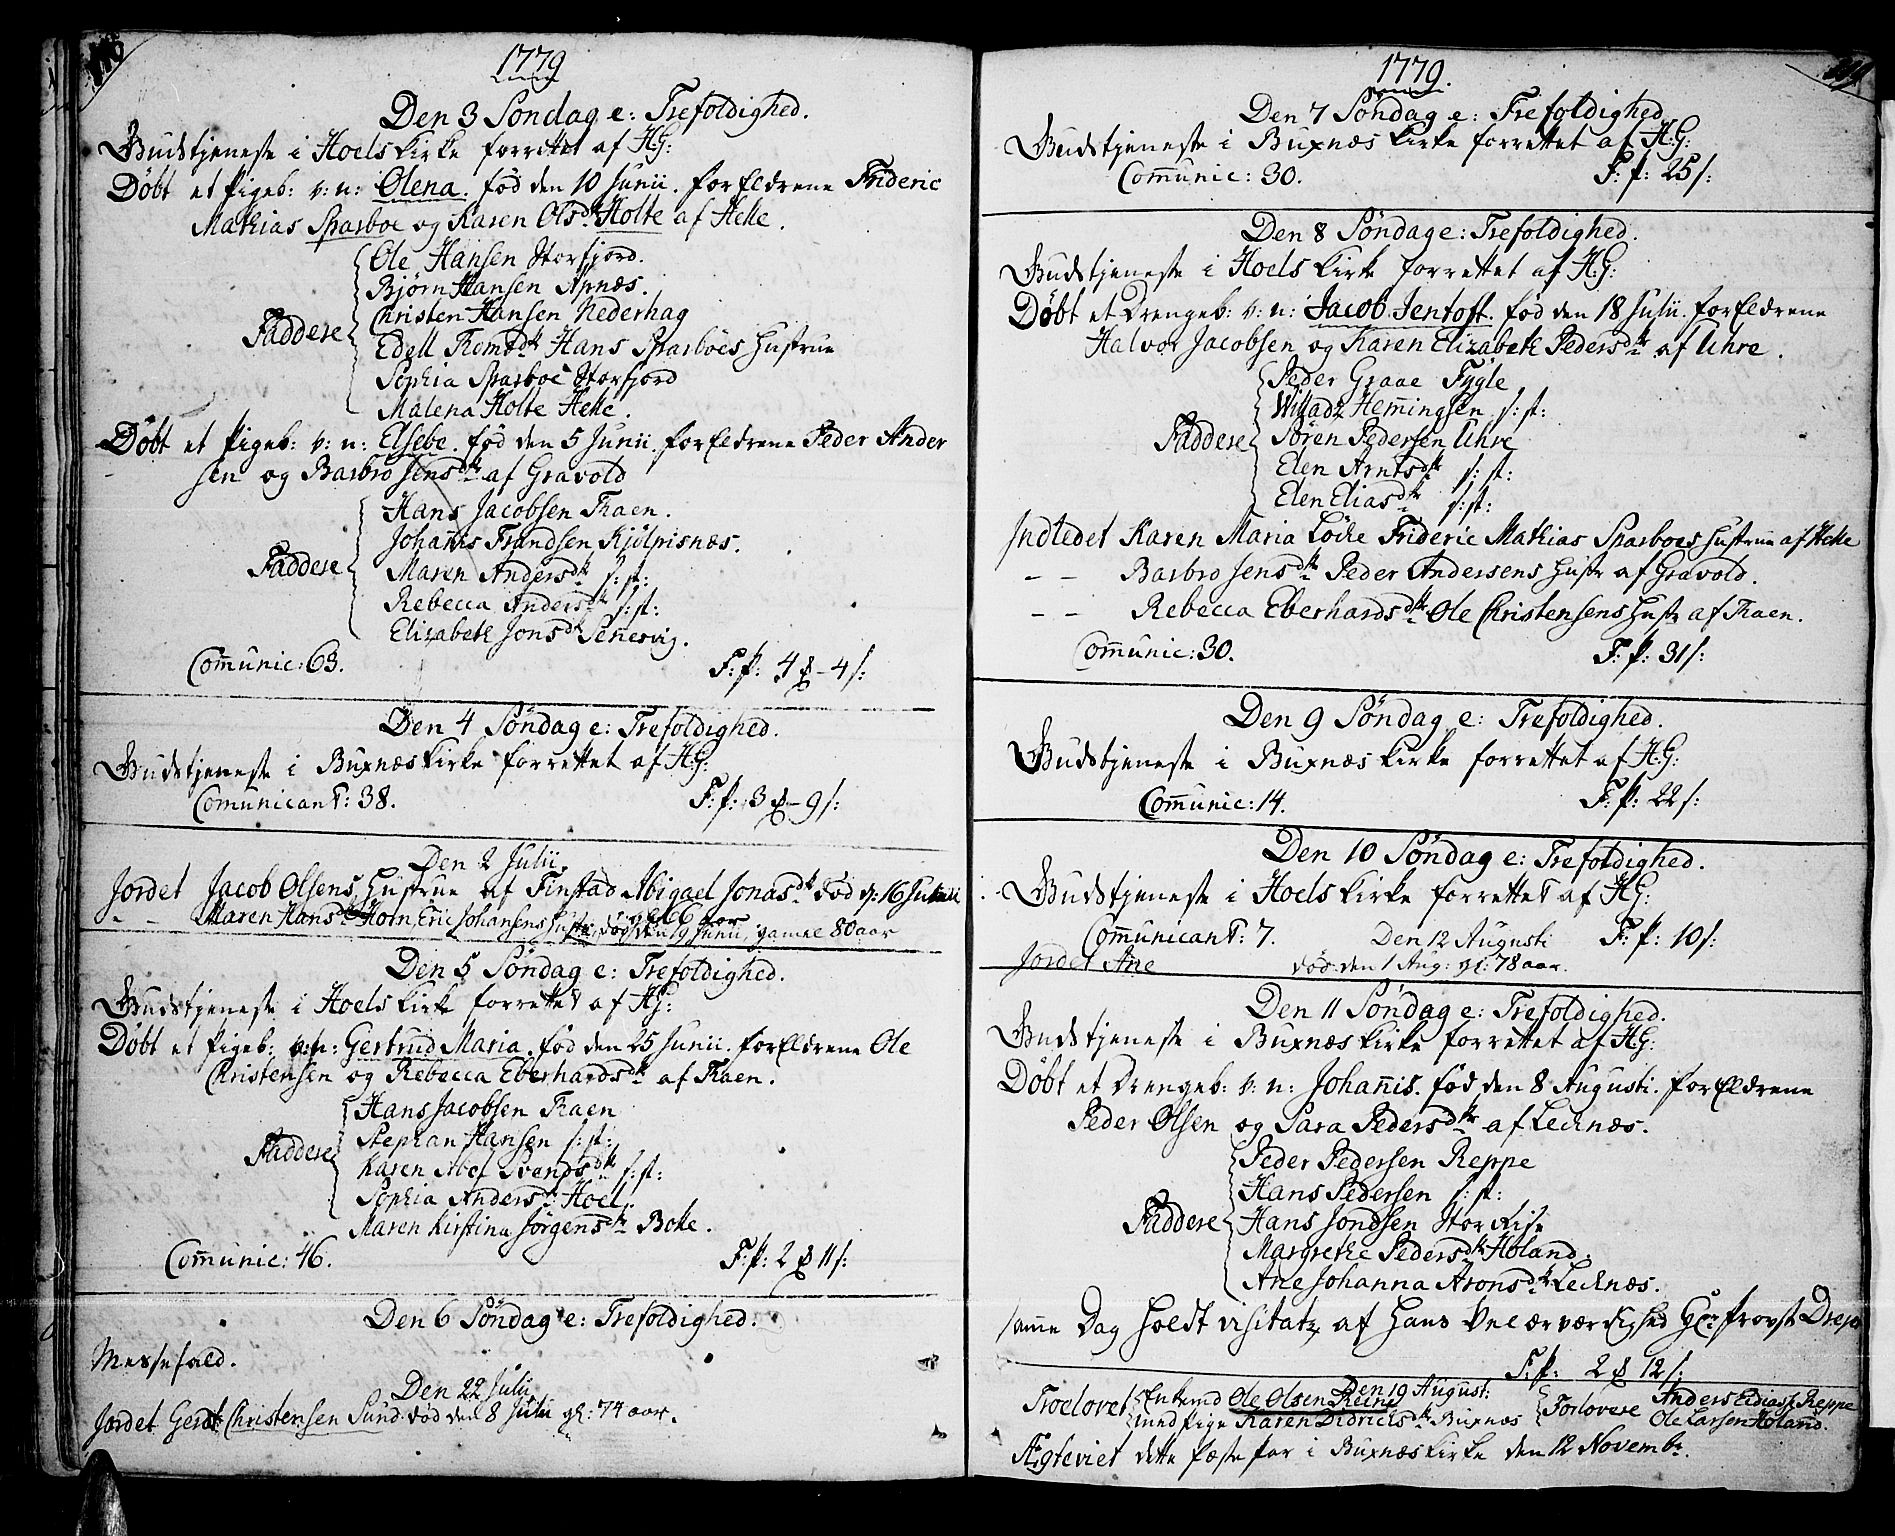 1779
Den 3 Søndag e: Trefoldighed.
Gudstjeneste i Hoels Kirke forrettet af H:G:
Døbt et Pigeb: v: n: Olena. fød den 10 Junii. forEldrene Frideric
Mathias Sparboe og Karen Olsd. Holte af Helle.
Ole Hansen Storfjord.
Bjørn Hansen Apnæs.
Christen Hansen Nederhag
Faddere
Edell Hans Sparboes Hustrue
Sophia Sparboe Storfjord
Malena Holte Helle.
Døbt et Pigeb: v: n: Elsebe. fød den 5 Junii. forEldrene Peder Ander
sen og Barbro Jensd. af Gravold
Hans Jacobsen Kaen.
Johañis Frandsen Kjølpisnæs.
Faddere
Maren Andersd. s: st:
Rebecca Andersd. s: st:
Elizabeth Jonsd. Sennesvig.
Com̃unic: 63. F: p: 4 – 4 s:
Den 4 Søndag e: Trefoldighed.
Gudstjeneste i Buxnæs Kirke forrettet af H:G:
Comunicant: 38. F: p: 3 – 9 s:
Den 2 Julii.
Jordet Jacob Olsens Hustrue af Finstad Abigael Jonasd. død d: 16 Junii
- - Maren Hansd. Horn, Eric Johansens Hustr: død den 19 Junii, gamel 80 aar
Den 5 Søndag e: Trefoldighed.
Gudstjeneste i Hoels Kirke forrettet af H:G:
Døbt et Pigeb: v: n: Gertrud Maria. fød den 25 Junii. forEldrene Ole
Christensen og Rebecca Eberhardsd. af Kaen.
Hans Jacobsen Kaen
Stephan Hansen s: st:
Faddere
Karen Abel Svendsd. s: st:
Sophia Andersd. Hoel.
Maren Kirstina Jørgensd. Bolle.
Com̃unic: 46. F: p: 2 11 s:
Den 6 Søndag e: Trefoldighed.
Messefald.
Den 22 Julii
Jordet Gerdt Christensen Sund. død den 8 Julii gl: 74 aar.
1779.
Den 7 Søndag e: Trefoldighed
Gudstjeneste i Buxnæs Kirke forrettet af H:G:
Com̃unic: 30. F: p: 25 s:
Den 8 Søndag e: Trefoldighed.
Gudstjeneste i Hoels Kirke forrettet af H:G:
Døbt et Drengeb: v: n: Jacob Jentoft. fød den 18 Julii. forEldrene
Halvor Jacobsen og Karen Elizabeth Pedersd. af Uhre.
Peder Graae Fygle
Willadz Hem̃ingsen s: st:
Faddere
Søren Pedersen Uhre
Elen Arntsd. s: st:
Elen Eliasd. s: st:
Indledet Karen Maria Frideric Mathias Sparboes Hustrue af Helle
- - Barbro Jensd. Peder Andersens Hustr af Gravold.
- - Rebecca Eberhardsd. Ole Christensens Hustr af Kaen.
Com̃unic: 30. F: p: 31 s:
Den 9 Søndag e: Trefoldighed.
Gudstjeneste i Buxnæs Kirke forrettet af H:G:
Com̃unic: 14. F: p: 22 s:
Den 10 Søndag e: Trefoldighed.
Gudstjeneste i Hoels Kirke forrettet af H:G:
Com̃unicant: 7. F: p: 10 s:
Den 12 Augusti
Jordet Ane død den 1 Aug: gl: 78 aar.
Den 11 Søndag e: Trefoldighed.
Gudstjeneste i Buxnæs Kirke forrettet af H:G:
Døbt et Drengeb: v: n: Johañis. fød den 8 Augusti. forEldrene
Peder Olsen og Sara Pedersd. af Lecknæs.
Peder Pedersen Reppe
Hans Pedersen s: st:
Faddere
Hans Jondsen Storeise
Margrethe Pedersd. Holand.
Ane Johanna Aronsd. Lecknæs.
Sam̃e Dag holdt visitatz af Hans Velærværdighed Hr: Provst
F: p: 2 12 s:
Den 19 August:
Troelovet Enkemd Ole Olsen Reine
med Pige Karen Didrichsd. Buxnæs
Forlovere Anders Reppe
Ole Larsen Holand.
Ægteviet dette Pæste par i Buxnæs Kirke den 12 Novembr.